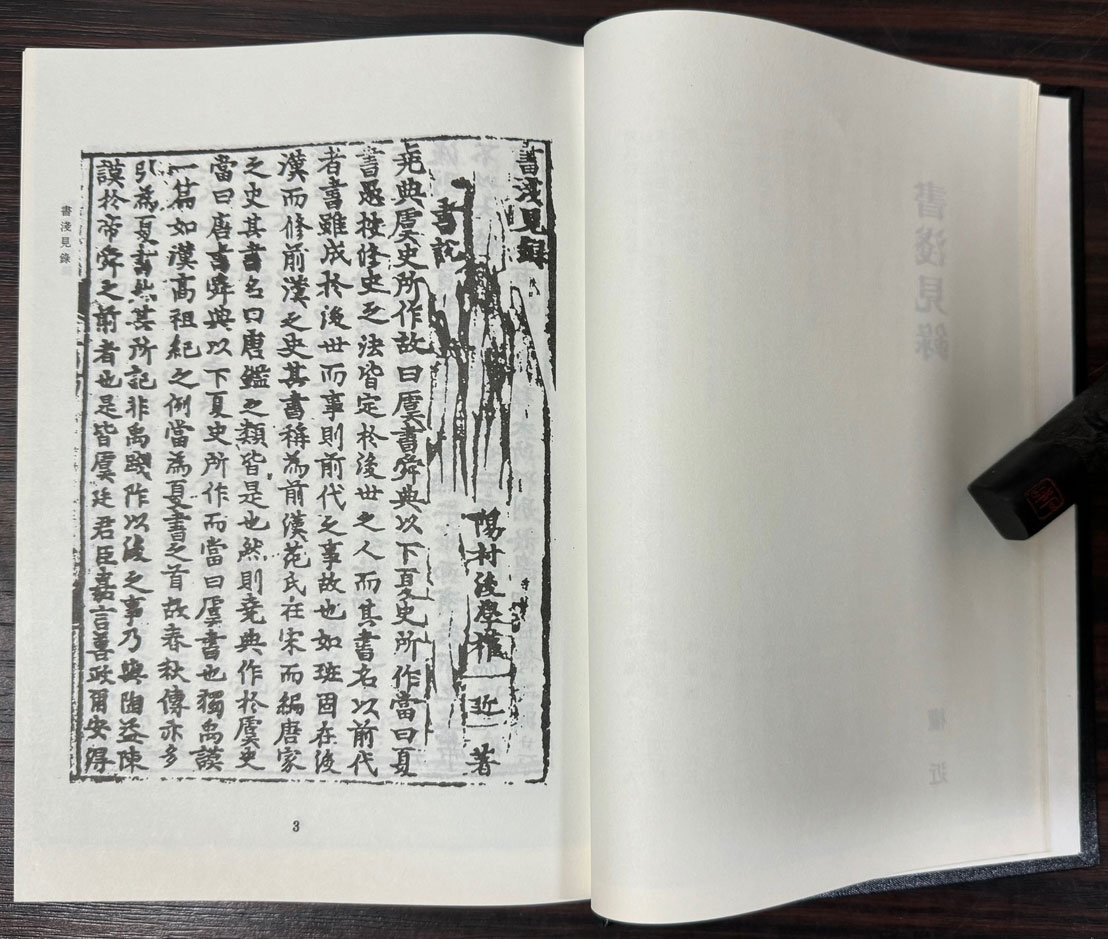 書淺見錄
陽村後學權近著
書說
堯典虞史所作故曰虞書舜典以下夏史所作當曰夏
書愚按修史之法皆定於後世之人而其書名以前代
者書雖成於後世而事則前代之事故也如班固在後
漢而修前漢之史其書稱為前漢范氏在宋而編唐家
之史其書名曰唐鑑之類皆是也然則堯典作於虞史
當曰唐書舜典以下夏史所作而當曰虞書也獨禹謨
一篇如漢高祖紀之例當為夏書之首故春秋傳亦多
引為夏書然其所記非禹踐阼以後之事乃與益陳
謨於帝舜之前者也是皆虞廷君臣嘉言善政爾安得
書淺見錄
3